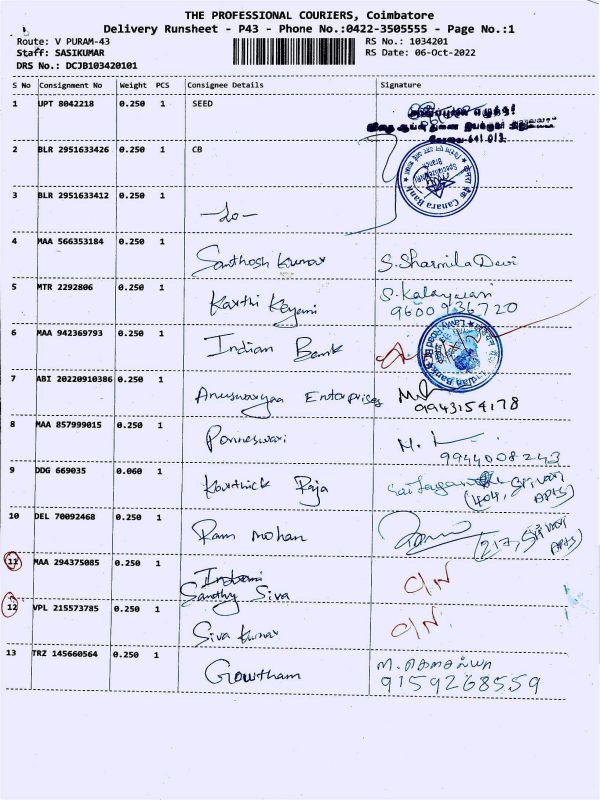 THE PROFESSIONAL COURIERS, Coimbatore
Delivery Runsheet - P43 - Phone No.:0422-3505555 - Page No.:1
Route: V PURAM-43
RS No.: 1034201
Staff: SASIKUMAR
RS Date: 06-Oct-2022
DRS No.: DCJB103420101
S No Consignment No Weight PCS Consignee Details Signature
1 UPT 8042218 0.250 1 SEED
கோவை-641 013
2 BLR 2951633426 0.250 1 CB
Canara Bank
3 BLR 2951633412 0.250 1 -do-
4 MAA 566353184 0.250 1 Santhosh Kumar S. Sharmila Devi
5 MTR 2292806 0.250 1 Karthi Keyani S. Kalaivani
9600936720
6 MAA 942369793 0.250 1 Indian Bank
Indian Bank
7 ABI 20220910386 0.250 1 Anuswaryaa Enterprises
9943154178
8 MAA 857999015 0.250 1 Ponneswari
9944008243
9 DDG 669035 0.060 1 Karthick Raja
(404, Sri vari
Apts)
10 DEL 70092468 0.250 1 Ram Mohan
(217, Sri vari
Apts)
11 MAA 294375085 0.250 1 C/N
Sandhy Siva
12 VPL 215573785 0.250 1 Siva Kumar C/N
13 TRZ 145660564 0.250 1 Gowtham M. கௌசல்யா
9159268559